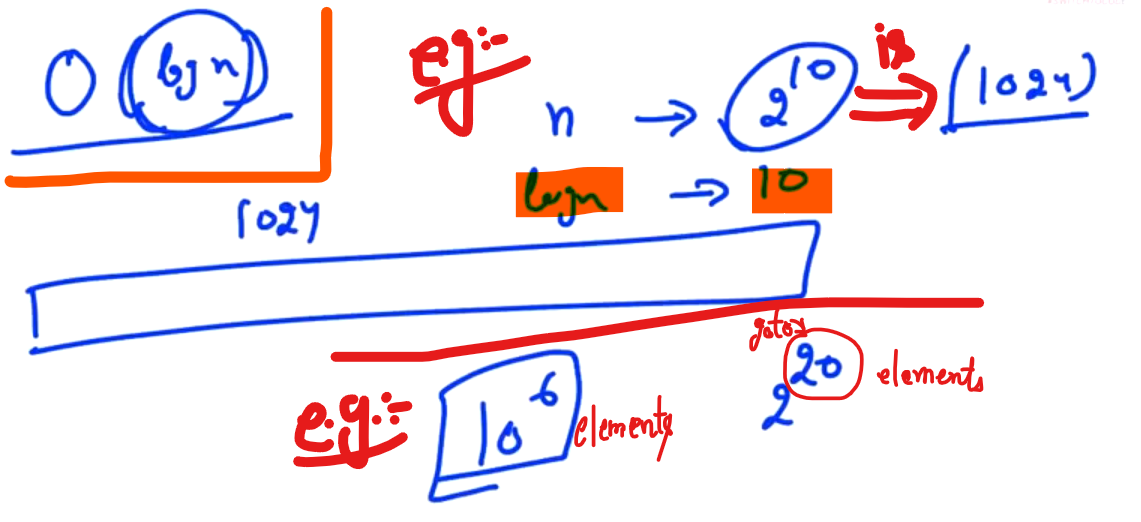 O (log n)
e.g:-
n → 2^10 is ⇒ (1024)
log n → 10
1024
goto
e.g:- 10^6 elements
2^20 elements